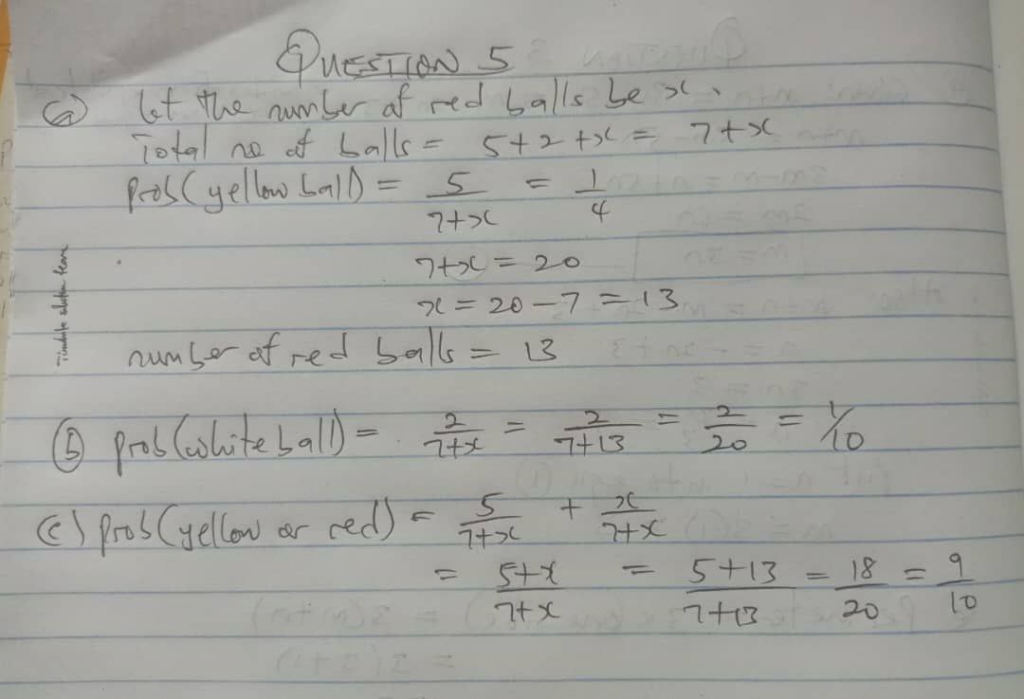 QUESTION 5
(a) let the number of red balls be x.
Total no of balls = 5+2+x = 7+x
prob(yellow ball) = 5/7+x = 1/4
7+x = 20
x = 20-7 = 13
number of red balls = 13
(b) prob(white ball) = 2/7+x = 2/7+13 = 2/20 = 1/10
(c) prob(yellow or red) = 5/7+x + x/7+x
= 5+x/7+x = 5+13/7+13 = 18/20 = 9/10